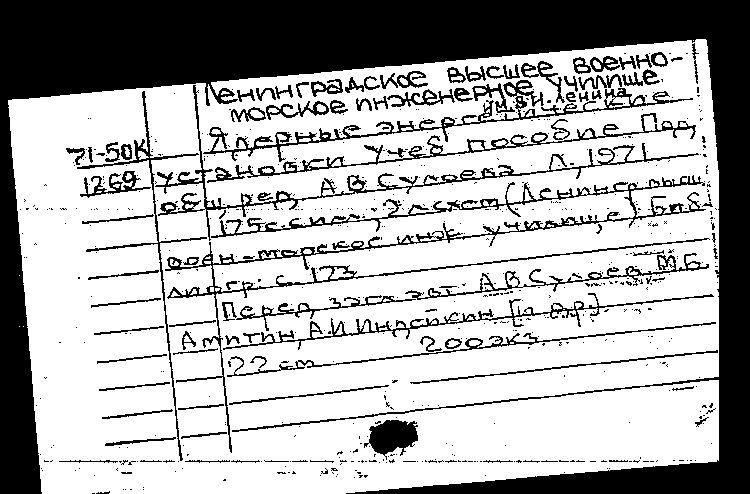 Ленинградское высшее военно-
морское инженерное училище
им. В.И. Ленина
71-50К Ядерные энергетические
1269 установки Учеб пособие Под
общ. ред. А.В. Сулоева Л., 1971
175с. с ил.; 2 л. схем (Ленингр. высш.
воен-морское инж. училище) Биб
лиогр: с. 173
Перед загл авт: А.В. Сулоев, М.Б.
Амитин, А.И. Индейкин [и др.]
22 cm 200 экз.